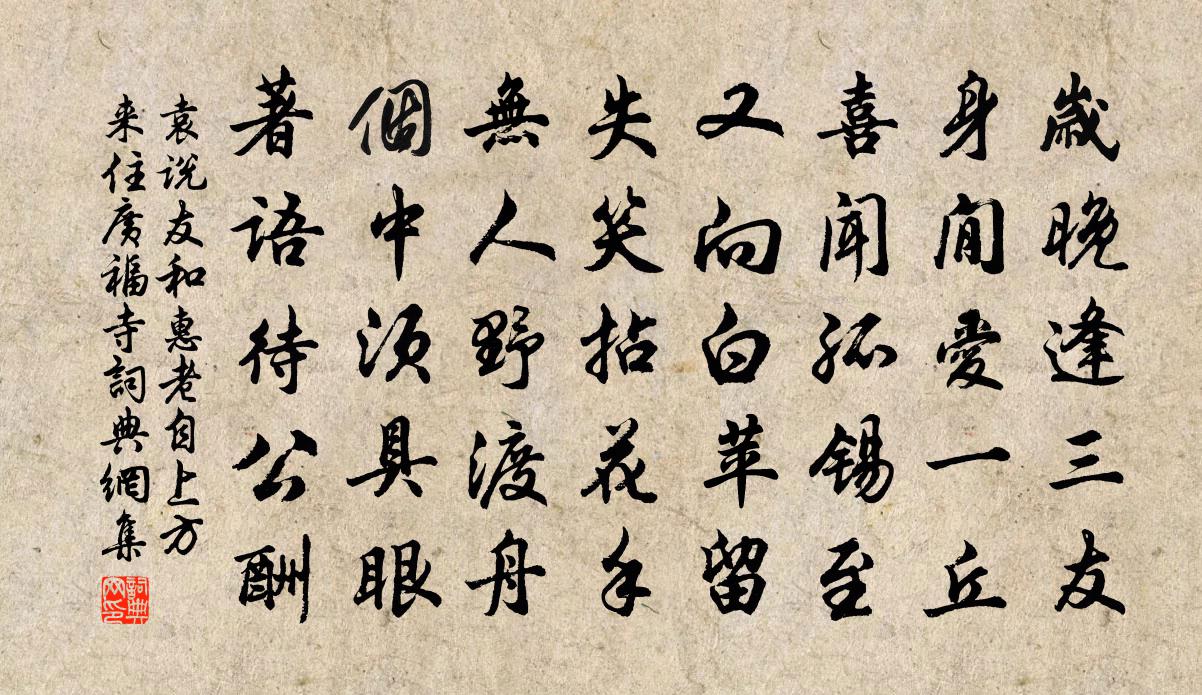 歲晚逢三友
身閒愛一丘
喜聞孤錫至
又向白苹留
失笑拈花手
無人野渡舟
個中須具眼
著語待公酬
袁説友和惠老自上方
来住廣福寺詞典網集
詞典網印